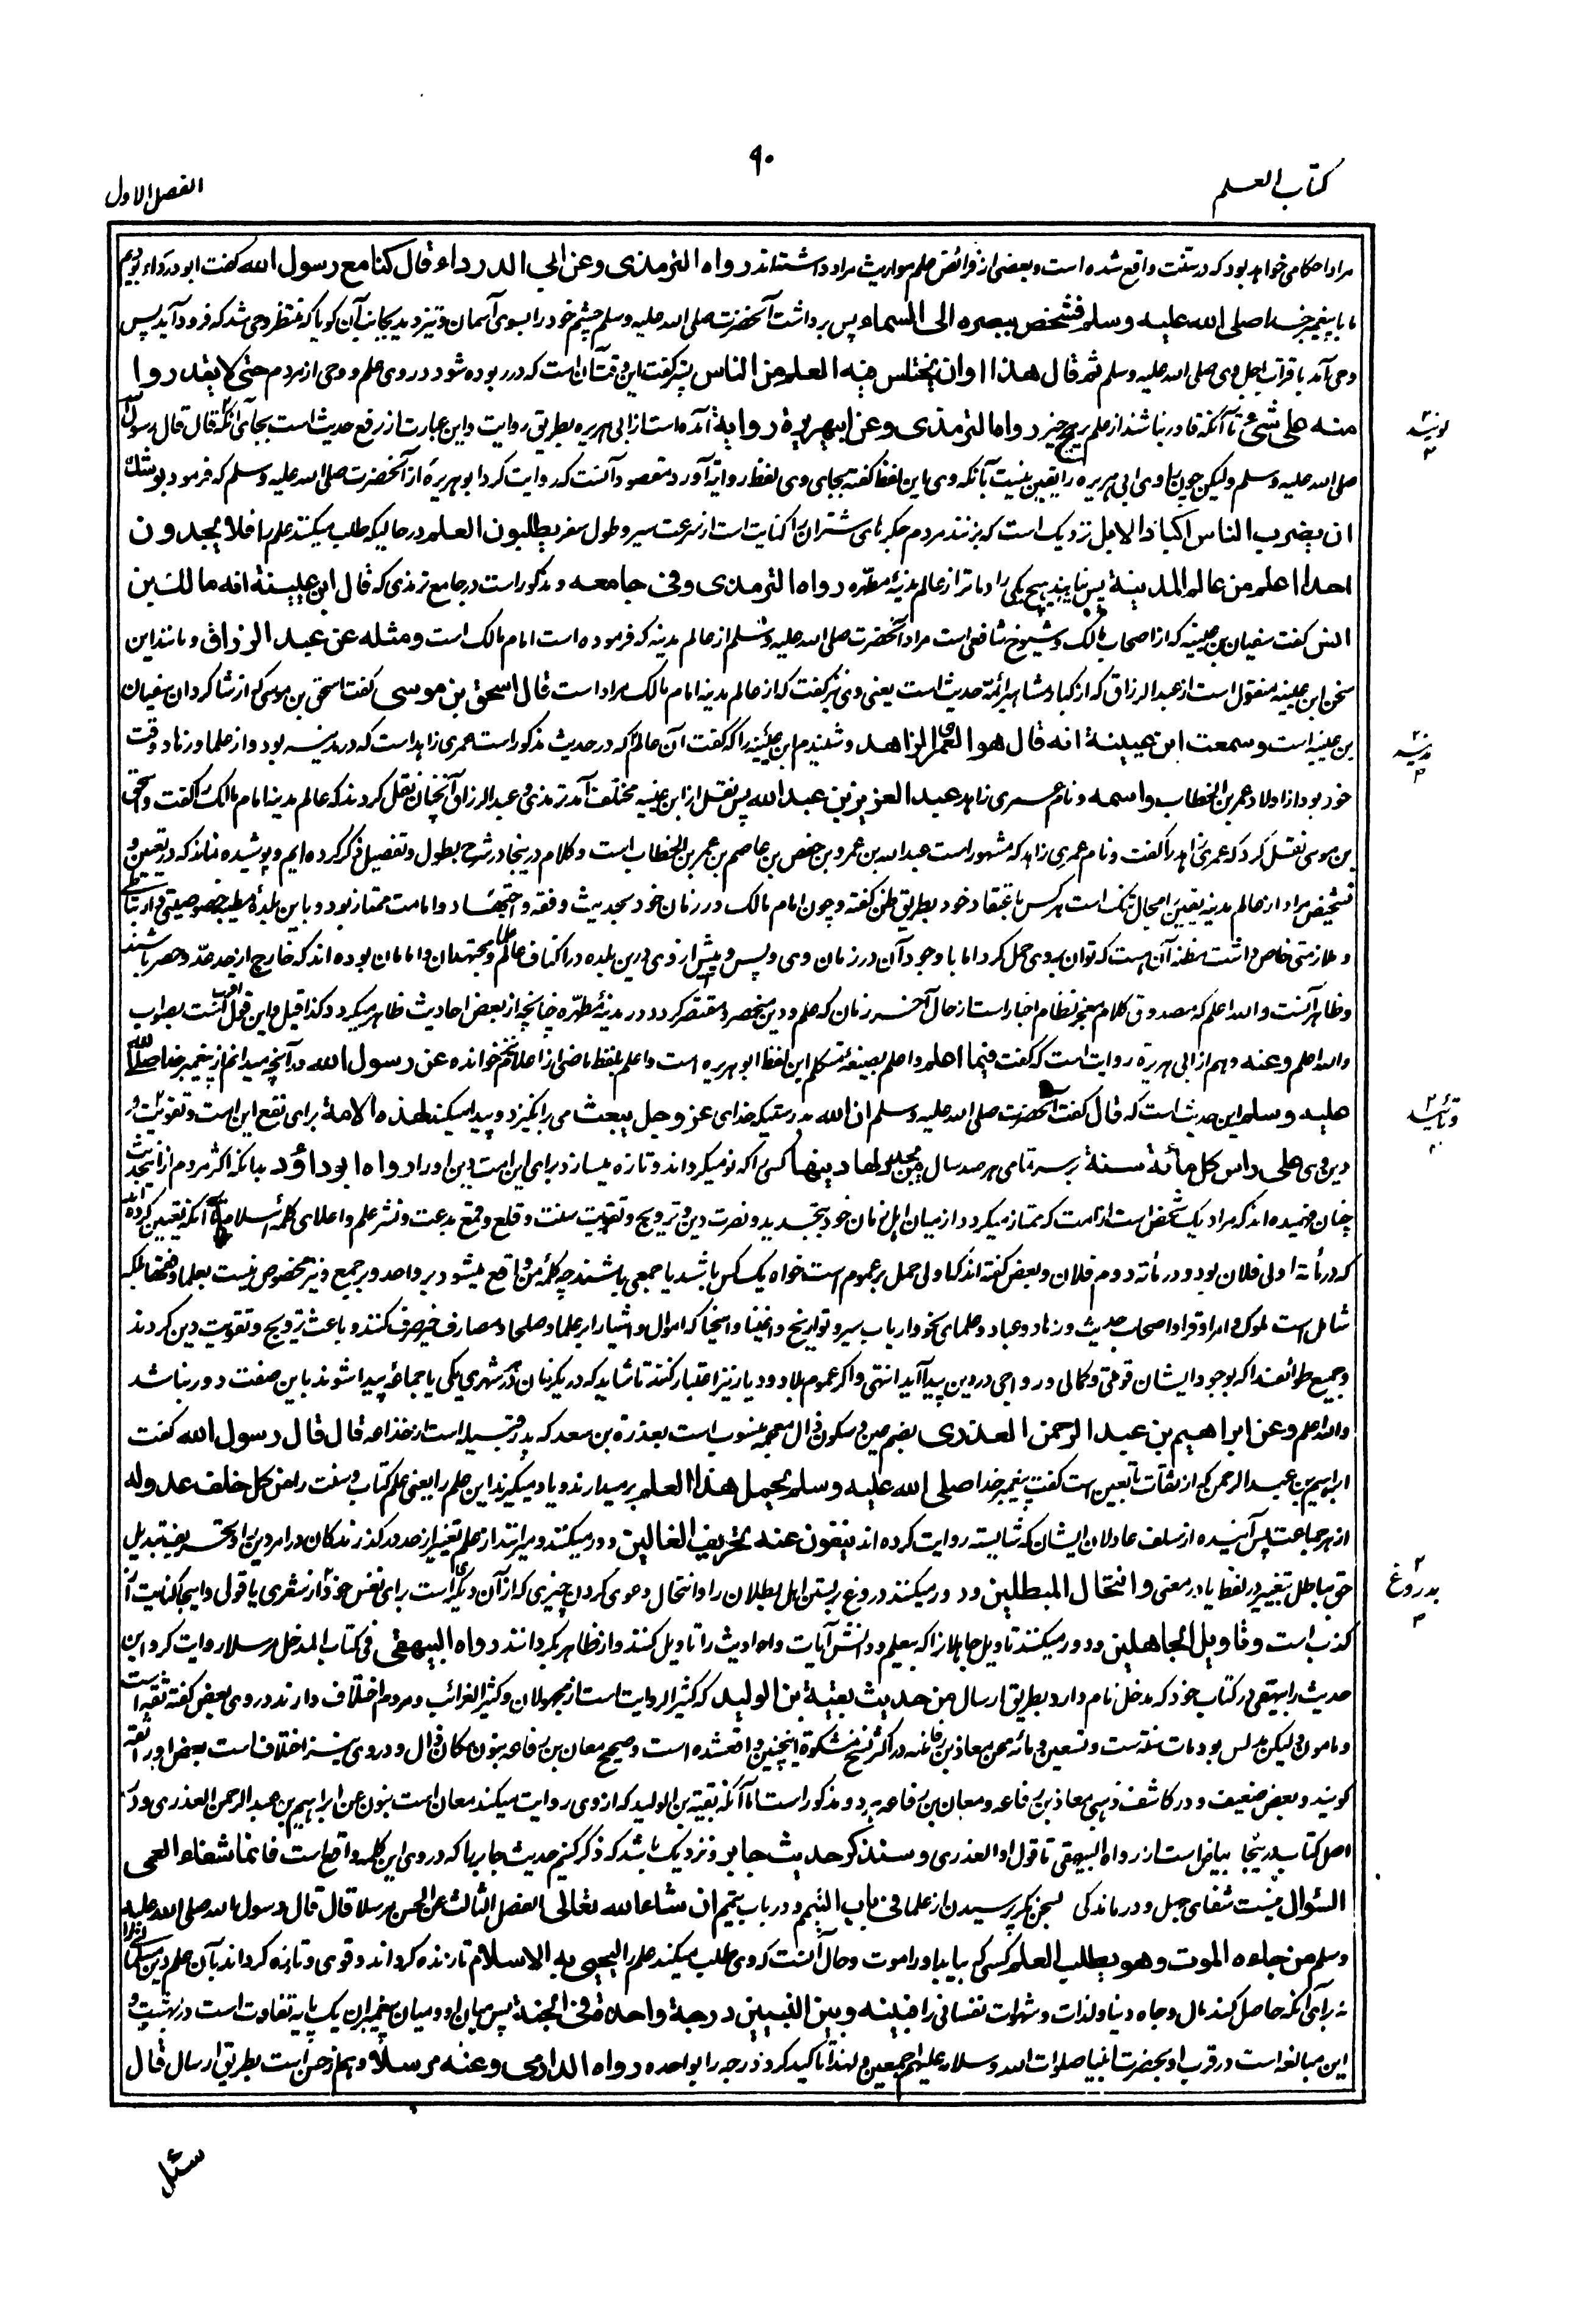 ۹۰
كتاب العلم
الفصل الاول
مراد احكامی خواهد بود كه در سنت واقع شده است و بعضی از فرائض علم مواريث مراد داشته‌اند رواه الترمذی وعن ابی الدرداء قال كنا مع رسول الله گفت ابو درداء بوديم
ما با پيغمبر خدا صلی الله عليه وسلم فشخص ببصره الی السماء پس برداشت آنحضرت صلی الله عليه وسلم چشم خود را بسوی آسمان و تيز ديد بجانب آن گويا كه منتظر وحی شد كه فرود آيد پس
وحی آمد باقتراب اجل وی صلی الله عليه وسلم ثم قال هذا اوان يختلس فيه العلم من الناس پستر گفت اين وقت آن است كه در ربوده شود در وی علم و وحی از مردم حتی لا يقدروا
منه علی شیء تا آنكه قادر نباشند از علم بر هيچ چيز رواه الترمذی وعن ابی هريرة رواية آمده است از ابی هريره بطريق روايت و اين عبارت از رفع حديث است بجای آنكه قال قال رسول الله
صلی الله عليه وسلم وليكن چون راوی ابی هريره را يقين نيست بآنكه وی اين لفظ گفته بجای وی لفظ رواية آورد مقصود آنست كه روايت كرد ابو هريره از آنحضرت صلی الله عليه وسلم كه فرمود يوشك
ان يضرب الناس اكباد الابل نزديك است كه بزنند مردم جگرهای شتران را كنايت است از سرعت سير و طول سفر يطلبون العلم در حاليكه طلب ميكنند علم را فلا يجدون
احدا اعلم من عالم المدينة پس نيابند هيچ يكی را داناتر از عالم مدينهٔ مطهره رواه الترمذی وفی جامعه و مذكور است در جامع ترمذی كه قال ابن عيينة انه مالك بن
انس گفت سفيان بن عيينه كه از اصحاب مالك و شيوخ شافعی است مراد آنحضرت صلی الله عليه وسلم از عالم مدينه كه فرموده است امام مالك است ومثله عن عبد الرزاق و مانند اين
سخن ابن عيينه منقول است از عبد الرزاق كه از كبار و مشاهير ائمهٔ حديث است يعنی وی نيز گفت كه از عالم مدينه امام مالك مراد است قال اسحق بن موسی گفت اسحق بن موسی كه از شاگردان سفيان
بن عيينه است وسمعت ابن عيينة انه قال هو العمری الزاهد و شنيدم ابن عيينه را كه گفت آن عالم كه در حديث مذكور است عمری زاهد است كه در مدينه بود و از علما و زهاد وقت
خود بود از اولاد عمر بن الخطاب واسمه و نام عمری زاهد عبد العزيز بن عبد الله پس نقل از ابن عيينه مختلف آمد ترمذی و عبد الرزاق آنچنان نقل كردند كه عالم مدينه امام مالك را گفت و اسحق
بن موسی نقل كرد كه عمری زاهد را گفت و نام عمری زاهد كه مشهور است عبد الله بن عمر و بن حفص بن عاصم بن عمر بن الخطاب است و كلام درينجا در شرح بطول و تفصيل ذكر كرده‌ايم و پوشيده نماند كه در تعيين و
تشخيص مراد از عالم مدينه يقين را مجال تنگ است هر كس باعتقاد خود بطريق ظن گفته و چون امام مالك در زمان خود بحديث و فقه و اجتهاد و امامت ممتاز بود و باين بلدهٔ مطيبه خصوصيتی و ارتباطی
و ملازمتی خاص داشت مظنهٔ آن هست كه توان بروی حمل كرد اما با وجود آن در زمان وی و پس و پيش از وی درين بلده و در اكناف عالم علما و مجتهدان و امامان بوده‌اند كه خارج از حد عد و حصر باشند
و ظاهر آنست والله اعلم كه مصدوق كلام معجز نظام اخبار است از حال آخر زمان كه علم و دين منحصر و مقتصر گردد در مدينهٔ مطهره چنانچه از بعض احاديث ظاهر ميگردد كذا قيل و اين قول اقرب است بصواب
والله اعلم وعنه و هم از ابی هريره روايت است كه گفت فيما اعلم و اعلم بصيغهٔ متكلم اين لفظ ابو هريره است و اعلم بلفظ ماضی از اعلام هم خوانده عن رسول الله در آنچه ميدانم از پيغمبر خدا صلی الله
عليه وسلم اين حديث است كه قال گفت آنحضرت صلی الله عليه وسلم ان الله بدرستيكه خدای عز وجل يبعث می برانگيزد و پيدا ميكند لهذه الامة برای نفع اين امت و تقويت
دين وی علی رأس كل مائة سنة بر سر تمامی هر صد سال من يجدد لها دينها كسی را كه نو ميگرداند و تازه ميسازد برای اين امت دين او را رواه ابو داؤد بدانكه اكثر مردم ازين حديث
چنان فهميده‌اند كه مراد يك شخص است از امت كه ممتاز ميگردد از ميان اهل زمان خود بتجديد و نصرت دين و ترويج و تقويت سنت و قلع و قمع بدعت و نشر علم و اعلای كلمهٔ اسلام تا آنكه تعيين كرده‌اند
كه در مائة اولی فلان بود و در مائه دوم فلان و بعض گفته‌اند كه اولی حمل بر عموم است خواه يك كس باشد يا جمعی باشند چه كلمهٔ من واقع ميشود بر واحد و بر جمع و نيز مخصوص نيست بعلما و فقها بلكه
شامل است ملوك و امرا و قرا و اصحاب حديث و زهاد و عباد و علمای نحو و ارباب سير و تواريخ و اغنيا و اسخيا كه اموال و اشيا را بر علما و صلحا و مصارف خير صرف كنند و باعث ترويج و تقويت دين گردند
و جميع طوائف را كه بوجود ايشان قوتی و كمالی و رواجی در دين پيدا آيد انتهی و اگر عموم بلاد و ديار نيز اعتبار كنند تا شايد كه در يك زمان در هر شهری يكی يا جماعهٔ پيدا شوند باين صفت دور نباشد
والله اعلم وعن ابراهيم بن عبد الرحمن العذری بضم عين و سكون ذال معجمه منسوب است بعذرة بن سعد كه پدر قبيله است از خزاعه قال قال رسول الله گفت
ابراهيم بن عبد الرحمن كه از ثقات تابعين است گفت پيغمبر خدا صلی الله عليه وسلم يحمل هذا العلم بر ميدارند و ياد ميگيرند اين علم را يعنی علم كتاب و سنت را من كل خلف عدوله
از هر جماعت پس آينده از سلف عادلان ايشان كه شايسته روايت كرده‌اند ينفون عنه تحريف الغالين دور ميكنند و ميرانند از علم تغيير از حد در گذرندگان در امر دين را و تحريف تبديل
حق بباطل بتغيير در لفظ يا در معنی وانتحال المبطلين و دور ميكنند دروغ بر بستن اهل بطلان را و انتحال دعوی كردن چيزی كه از آن ديگری است برای نفس خود از شعری يا قولی و اينجا كنايت از
كذب است وتاويل الجاهلين و دور ميكنند تاويل جاهلان را كه بی علم و دانش آيات و احاديث را تاويل كنند و از ظاهر بگردانند رواه البيهقی فی كتاب المدخل مرسلا روايت كرد اين
حديث را بيهقی در كتاب خود كه مدخل نام دارد بطريق ارسال من حديث بقية بن الوليد كه كثير الروايت است از مجهولان و كثير الغرائب و مردم اختلاف دارند در وی بعض گفته ثقه است
و مامون وليكن مدلس بود مات سنة ست و تسعين و مائه عن معاذ بن رفاعه در اكثر نسخ مشكوة اينچنين واقع شده است و صحيح معان بن رفاعه بنون مكان ذال و در وی نيز اختلاف است بعض او را ثقه
گويند و بعض ضعيف و در كاشف ذهبی معاذ بن رفاعه و معان بن رفاعه هر دو مذكور است اما آنكه بقية بن الوليد كه از وی روايت ميكند معان است بنون عن ابراهيم بن عبد الرحمن العذری و در
اصل كتاب درينجا بياض است از رواه البيهقی تا قول او العذری وسنذكر حديث جابر و نزديك باشد كه ذكر كنيم حديث جابر را كه در وی اين كلمه واقع است فانما شفاء العی
السؤال نيست شفای جهل و درماندگی بسخن مگر پرسيدن از علما فی باب التيمم و در باب تيمم ان شاء الله تعالی الفصل الثالث عن الحسن مرسلا قال قال رسول الله صلی الله عليه
وسلم من جاءه الموت وهو يطلب العلم كسی كه بيايد او را موت و حال آنست كه وی طلب ميكند علم را ليحيی به الاسلام تا زنده گرداند و قوی و تازه گرداند بآن علم دين مسلمانی را
نه برای آنكه حاصل كند مال و جاه دنيا و لذات و شهوات نفسانی را فبينه وبين النبيين درجة واحدة فی الجنة پس ميان او و ميان پيغمبران يك پايه تفاوت است در بهشت و
اين مبالغه است در قرب او بحضرت انبيا صلوات الله وسلامه عليهم اجمعين و لهذا تاكيد كرد درجه را بواحده رواه الدارمی وعنه مرسلا و هم از حسن است بطريق ارسال قال
مدينه
و تائيد
بدروغ
سئل